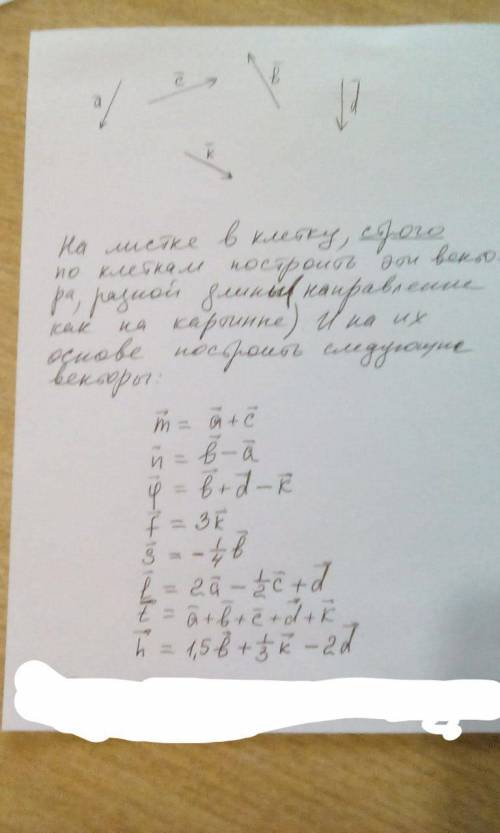 a⃗ c⃗ b⃗ d⃗
k⃗
На листке в клетку, строго
по клеткам построить эти векто-
ра, разной длины (направление
как на картинке) И на их
основе построить следующие
векторы:
m⃗ = a⃗ + c⃗
n⃗ = b⃗ - a⃗
φ⃗ = b⃗ + d⃗ - k⃗
f⃗ = 3k⃗
s⃗ = - 1/4 b⃗
l⃗ = 2a⃗ - 1/2 c⃗ + d⃗
t⃗ = a⃗ + b⃗ + c⃗ + d⃗ + k⃗
h⃗ = 1,5b⃗ + 1/3 k⃗ - 2d⃗